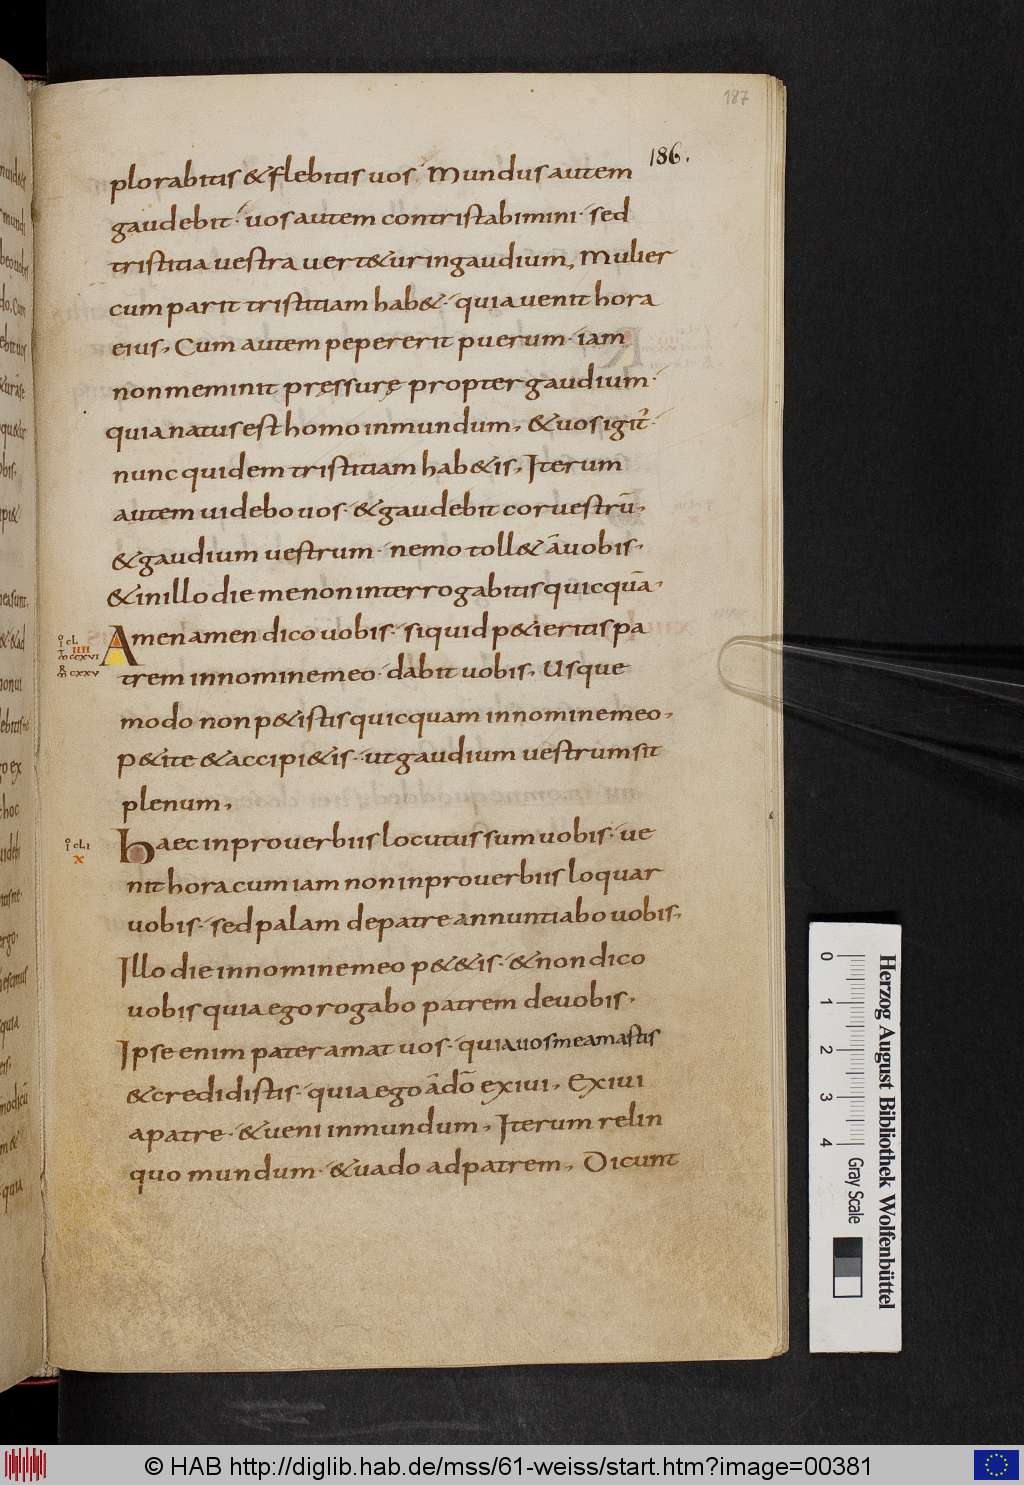 187
186.
plorabitis & flebitis uos · Mundus autem
gaudebit · uos autem contristabimini · sed
tristitia uestra uert&ur in gaudium, Mulier
cum parit tristitiam hab& · quia uenit hora
eius, Cum autem pepererit puerum · iam
non meminit pręssurę propter gaudium ·
quia natus est homo in mundum, & uos igit̄ ·
nunc quidem tristitiam hab&is, Iterum
autem uidebo uos · & gaudebit cor uestrū,
& gaudium uestrum · nemo toll& ā uobis,
& in illo die me non interrogabitis quicquā,
Amen amen dico uobis · siquid p&ieritis pa
trem in nomine meo · dabit uobis, Usque
modo non p&istis quicquam in nomine meo,
P&ite & accipi&is · ut gaudium uestrum sit
plenum,
Haec in prouerbiis locutus sum uobis · ue
nit hora cum iam non in prouerbiis loquar
uobis · sed palam de patre annuntiabo uobis,
Illo die in nomine meo p&&is · & non dico
uobis quia ego rogabo patrem de uobis,
Ipse enim pater amat uos · quia uos me amastis
& credidistis · quia ego ā dō exiui, Exiui
a patre · & ueni in mundum, Iterum relin
quo mundum · & uado ad patrem, Dicunt
cL
IIII
ccxvi
cxxv
cLi
x
0 1 2 3 4
Gray Scale
Herzog August Bibliothek Wolfenbüttel
© HAB http://diglib.hab.de/mss/61-weiss/start.htm?image=00381